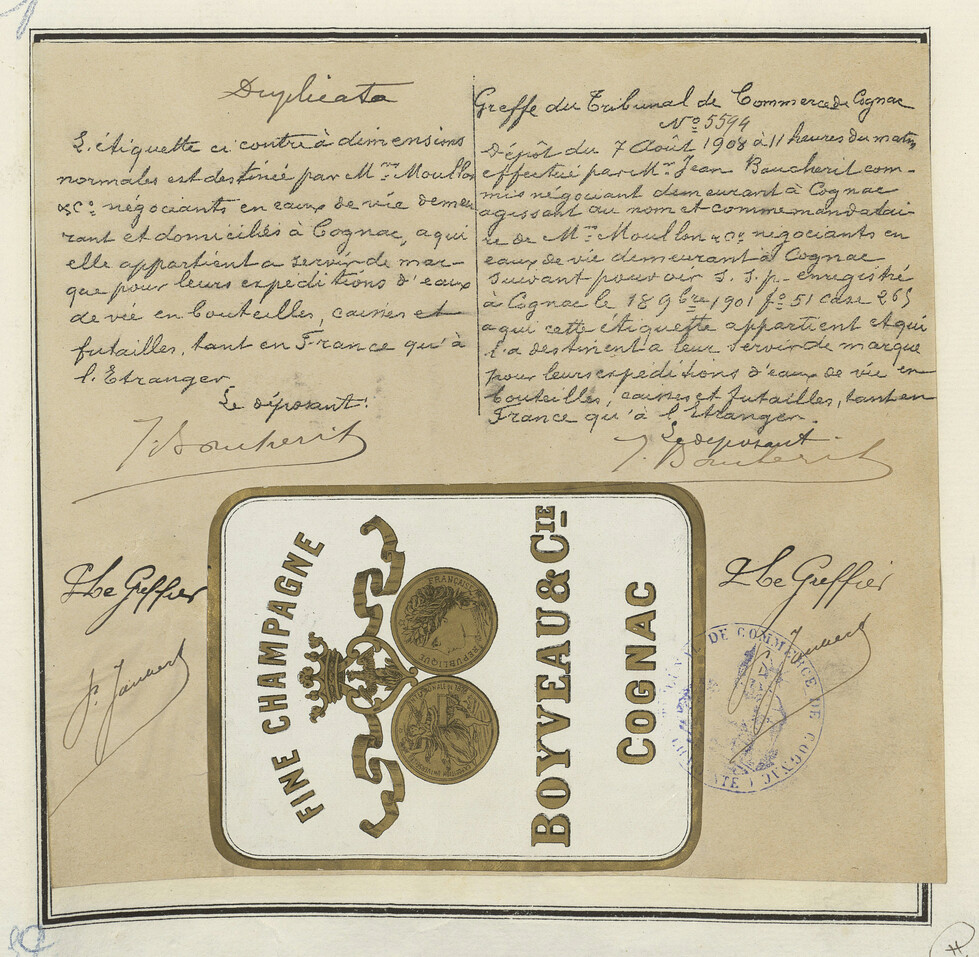 Duplicata
L'étiquette ci contre à dimensions
normales est destinée par Mrs Moullon
& Co négociants en eaux de vie demeu
rant et domiciliés à Cognac, a qui
elle appartient a servir de mar-
que pour leurs expeditions d'eaux
de vie en bouteilles, caisses et
futailles, tant en France qu'à
l'Etranger
Le déposant:
J. Boucherit
Greffe du Tribunal de Commerce de Cognac
No 5594
Dépôt du 7 Août 1908 à 11 heures du matin
effectué par Mr Jean Boucherit com-
mis négociant demeurant à Cognac
agissant au nom et comme mandatai-
re de Mrs Moullon & Co négociants en
eaux de vie demeurant à Cognac
suivant pouvoir s. s. p. enregistré
à Cognac le 18 9bre 1901 fo 51 case 265
a qui cette étiquette appartient et qui
l'a destinent a leur servir de marque
pour leurs expeditions d'eaux de vie en
bouteilles, caisses et futailles, tant en
France qu'à l'Etranger
Le déposant
J. Boucherit
Le Greffier
Le Greffier
FINE CHAMPAGNE
RÉPUBLIQUE FRANÇAISE
BOYVEAU & CIE
COGNAC
TRIBUNAL DE COMMERCE DE COGNAC